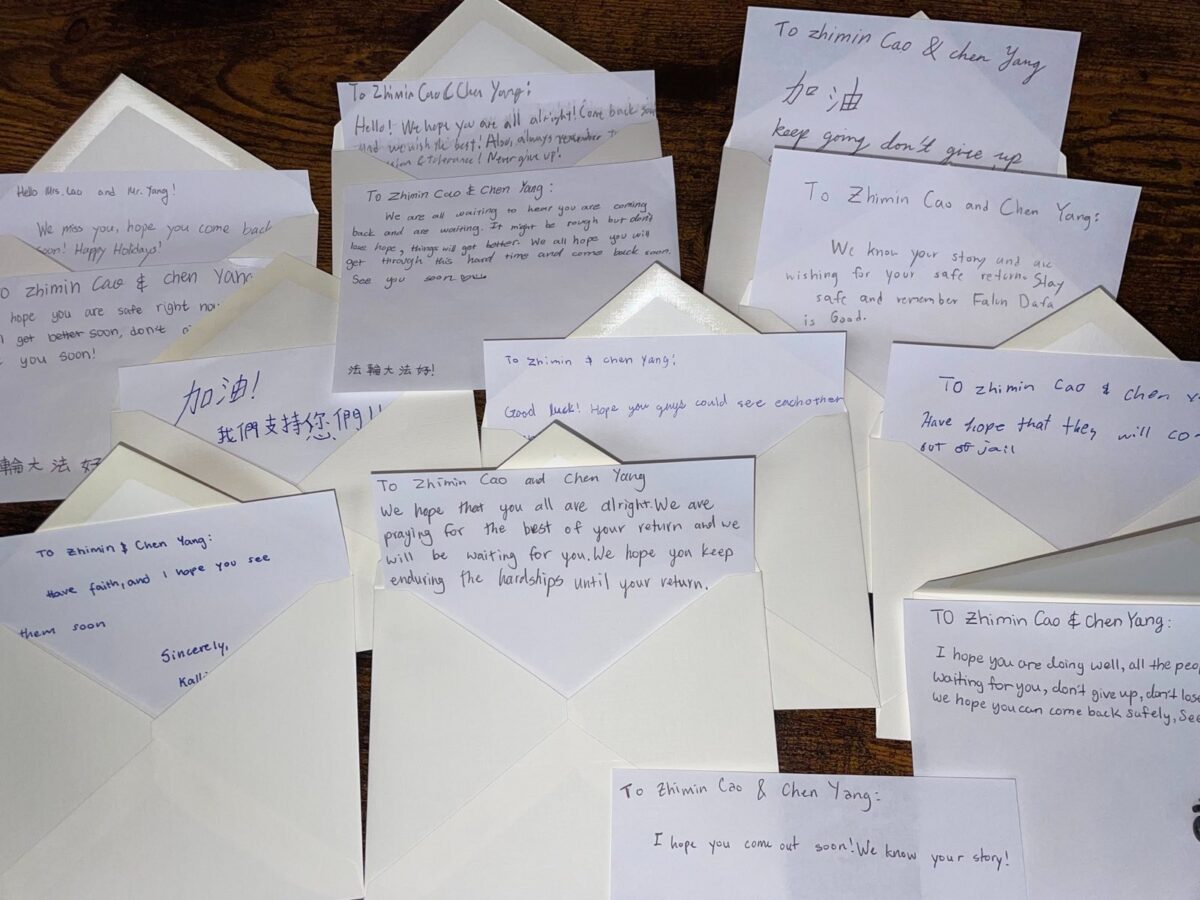 Hello Mrs. Cao and Mr. Yang!
We miss you, hope you come back
soon! Happy Holidays!
To Zhimin Cao & Chen Yang:
Hello! We hope you are all alright! Come back soon
and we wish the best! Also, always remember
& tolerance! Never give up!
To zhimin Cao & chen Yang
加油
keep going don't give up
To Zhimin Cao & Chen Yang:
We are all waiting to hear you are coming
back and are waiting. It might be rough but don't
lose hope, things will get better. We all hope you will
get through this hard time and come back soon.
See you soon
法輪大法好!
To Zhimin Cao and Chen Yang:
We know your story and are
wishing for your safe return. Stay
safe and remember Falun Dafa
is Good.
To zhimin Cao & chen Yang
hope you are safe right now
get better soon, don't
you soon!
輪大法好
加油!
我們支持您們!!
To zhimin & chen Yang!
Good luck! Hope you guys could see eachother
To zhimin Cao & chen
Have hope that they will
out of jail
To zhimin & Chen Yang:
Have faith, and I hope you see
them soon
Sincerely,
To Zhimin Cao and Chen Yang
We hope that you all are alright. We are
praying for the best of your return and we
will be waiting for you. We hope you keep
enduring the hardships until your return.
To zhimin Cao & Chen Yang:
I hope you are doing well, all the
waiting for you, don't give up, don't lose
we hope you can come back safely, See
To zhimin Cao & Chen Yang:
I hope you come out soon! We know your story!